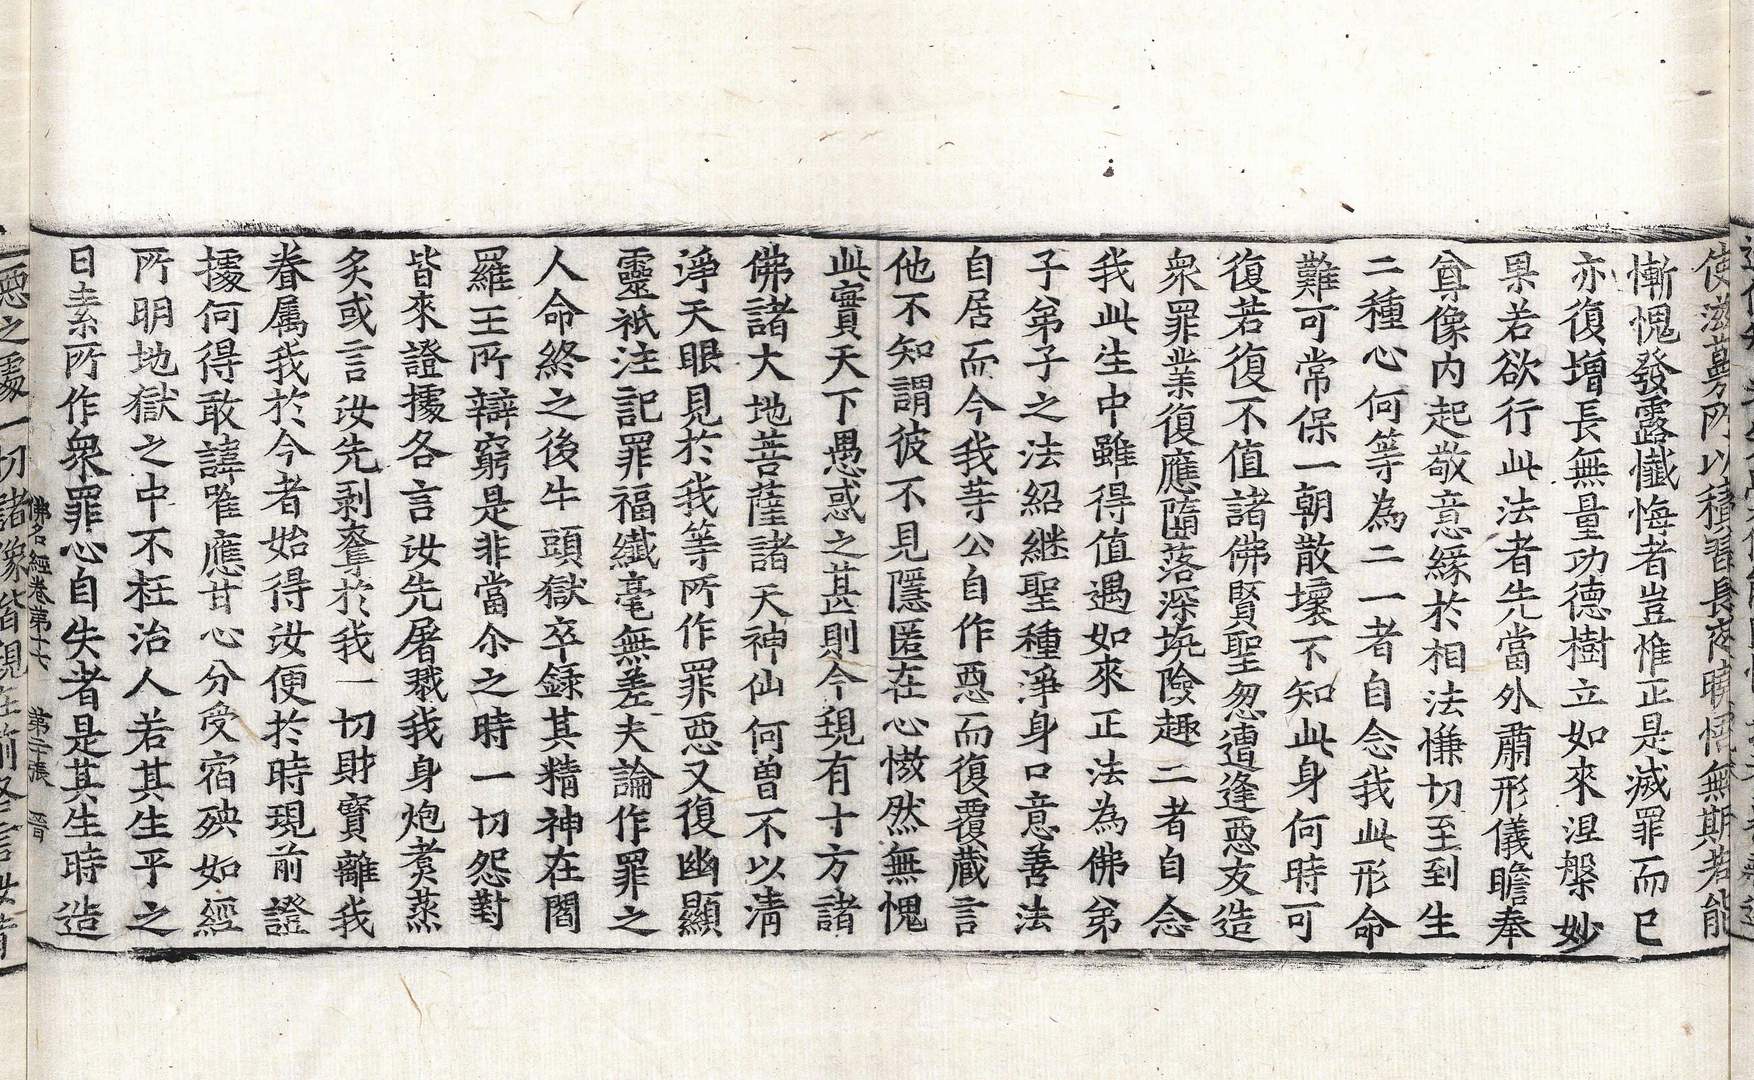 使滋蔓所以積習長夜曉悟無期若能
慚愧發露懴悔者豈惟正是滅罪而已
亦復增長無量功德樹立如來涅槃妙
果若欲行此法者先當外肅形儀瞻奉
尊像內起敬意緣於相法慊切至到生
二種心何等為二一者自念我此形命
難可常保一朝散壞不知此身何時可
復若復不值諸佛賢聖忽遭逢惡友造
衆罪業復應墮落深坑險趣二者自念
我此生中雖得值遇如來正法為佛弟
子弟子之法紹継聖種淨身口意善法
自居而今我等公自作惡而復覆藏言
他不知謂彼不見隱匿在心慠然無愧
此實天下愚惑之甚則今現有十方諸
佛諸大地菩薩諸天神仙何曾不以清
淨天眼見於我等所作罪惡又復幽顯
靈祇注記罪福纖毫無差夫論作罪之
人命終之後牛頭獄卒錄其精神在閻
羅王所辯窮是非當尒之時一切怨對
皆來證據各言汝先屠戮我身炮煑蒸
炙或言汝先剥奪於我一切財寶離我
眷屬我於今者始得汝便於時現前證
據何得敢諱唯應甘心分受宿殃如經
所明地獄之中不枉治人若其生平之
日素所作衆罪心自失者是其生時造
佛名經卷第十六 第三張 晉
惡之處一切諸像皆現在前